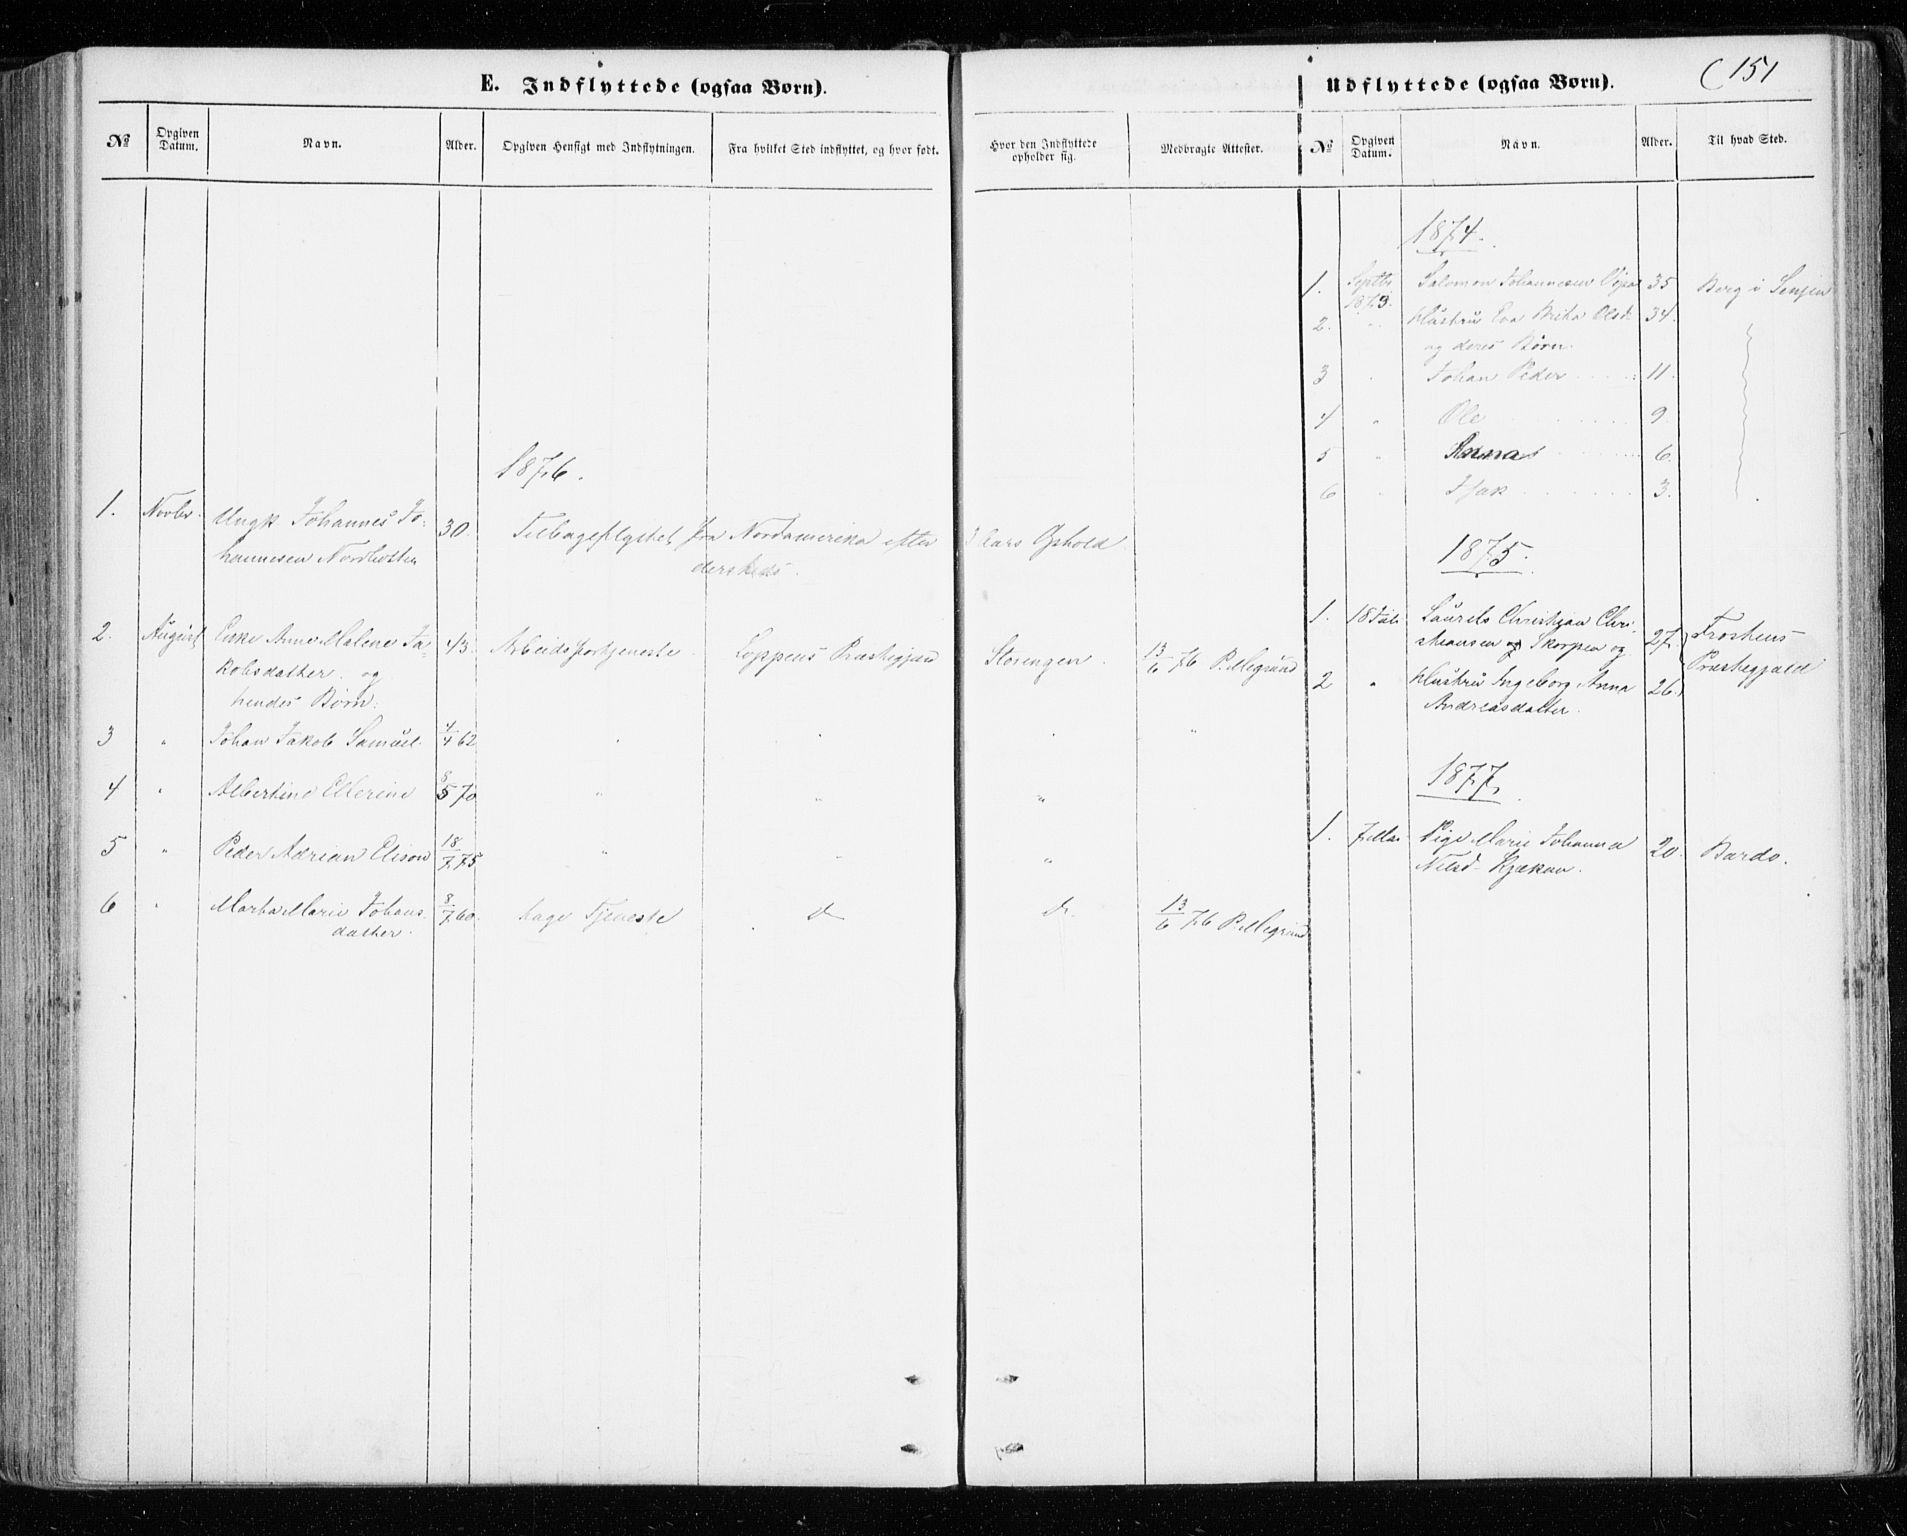 E. Indflyttede (ogsaa Børn).
№ Opgiven Datum. Navn. Alder. Opgiven Hensigt med Indflytningen. Fra hvilket Sted indflyttet, og hvor født. Hvor den Indflyttede opholder sig. Medbragte Attester.
1876.
1. Novbr. Ungk Johannes Jo- 30. Tilbageflyttet fra Nordamerika efter 3 Aars Ophold
hannesen Nordbotten dersteds.
2. August Enke Anne Malene Ja- 43. Arbeidsfortjeneste Loppens Præstegjæld Storengen. 13/6 76 P. Megrund
kobsdatter. og
hendes Børn:
3 " Johan Jakob Samuel. 4/4 62 " " " "
4 " Albertine Ellerine 8/5 70 " " "
5 " Peder Adrian Elison 18/7 75 " " "
6 " Marta Marie Johans- 8/7 60. tage Tjeneste d d. 13/6 76 P. Megrund
datter.
Udflyttede (ogsaa Børn).
151
№ Opgiven Datum. Navn. Alder. Til hvad Sted.
1874.
1. Septbr 1873. Salomon Johannesen 35 Berg i Senjen
2. " Hustru Eva Brita Olsd. 34.
og deres Børn.
3 " Johan Peder 11.
4 " Ole 9
5 " Anna 6.
6 " Isak 3.
1875.
1. 18 Juli Laurits Christian Chri- 27. Trostens
stiansen og Skorpen og Præstegjæld
2 " Hustru Ingeborg Anna 26.
Andreasdatter.
1877.
1. 7 Mai Pige Marie Johanna 20. Bardo.
Nilsd. Kjækan.